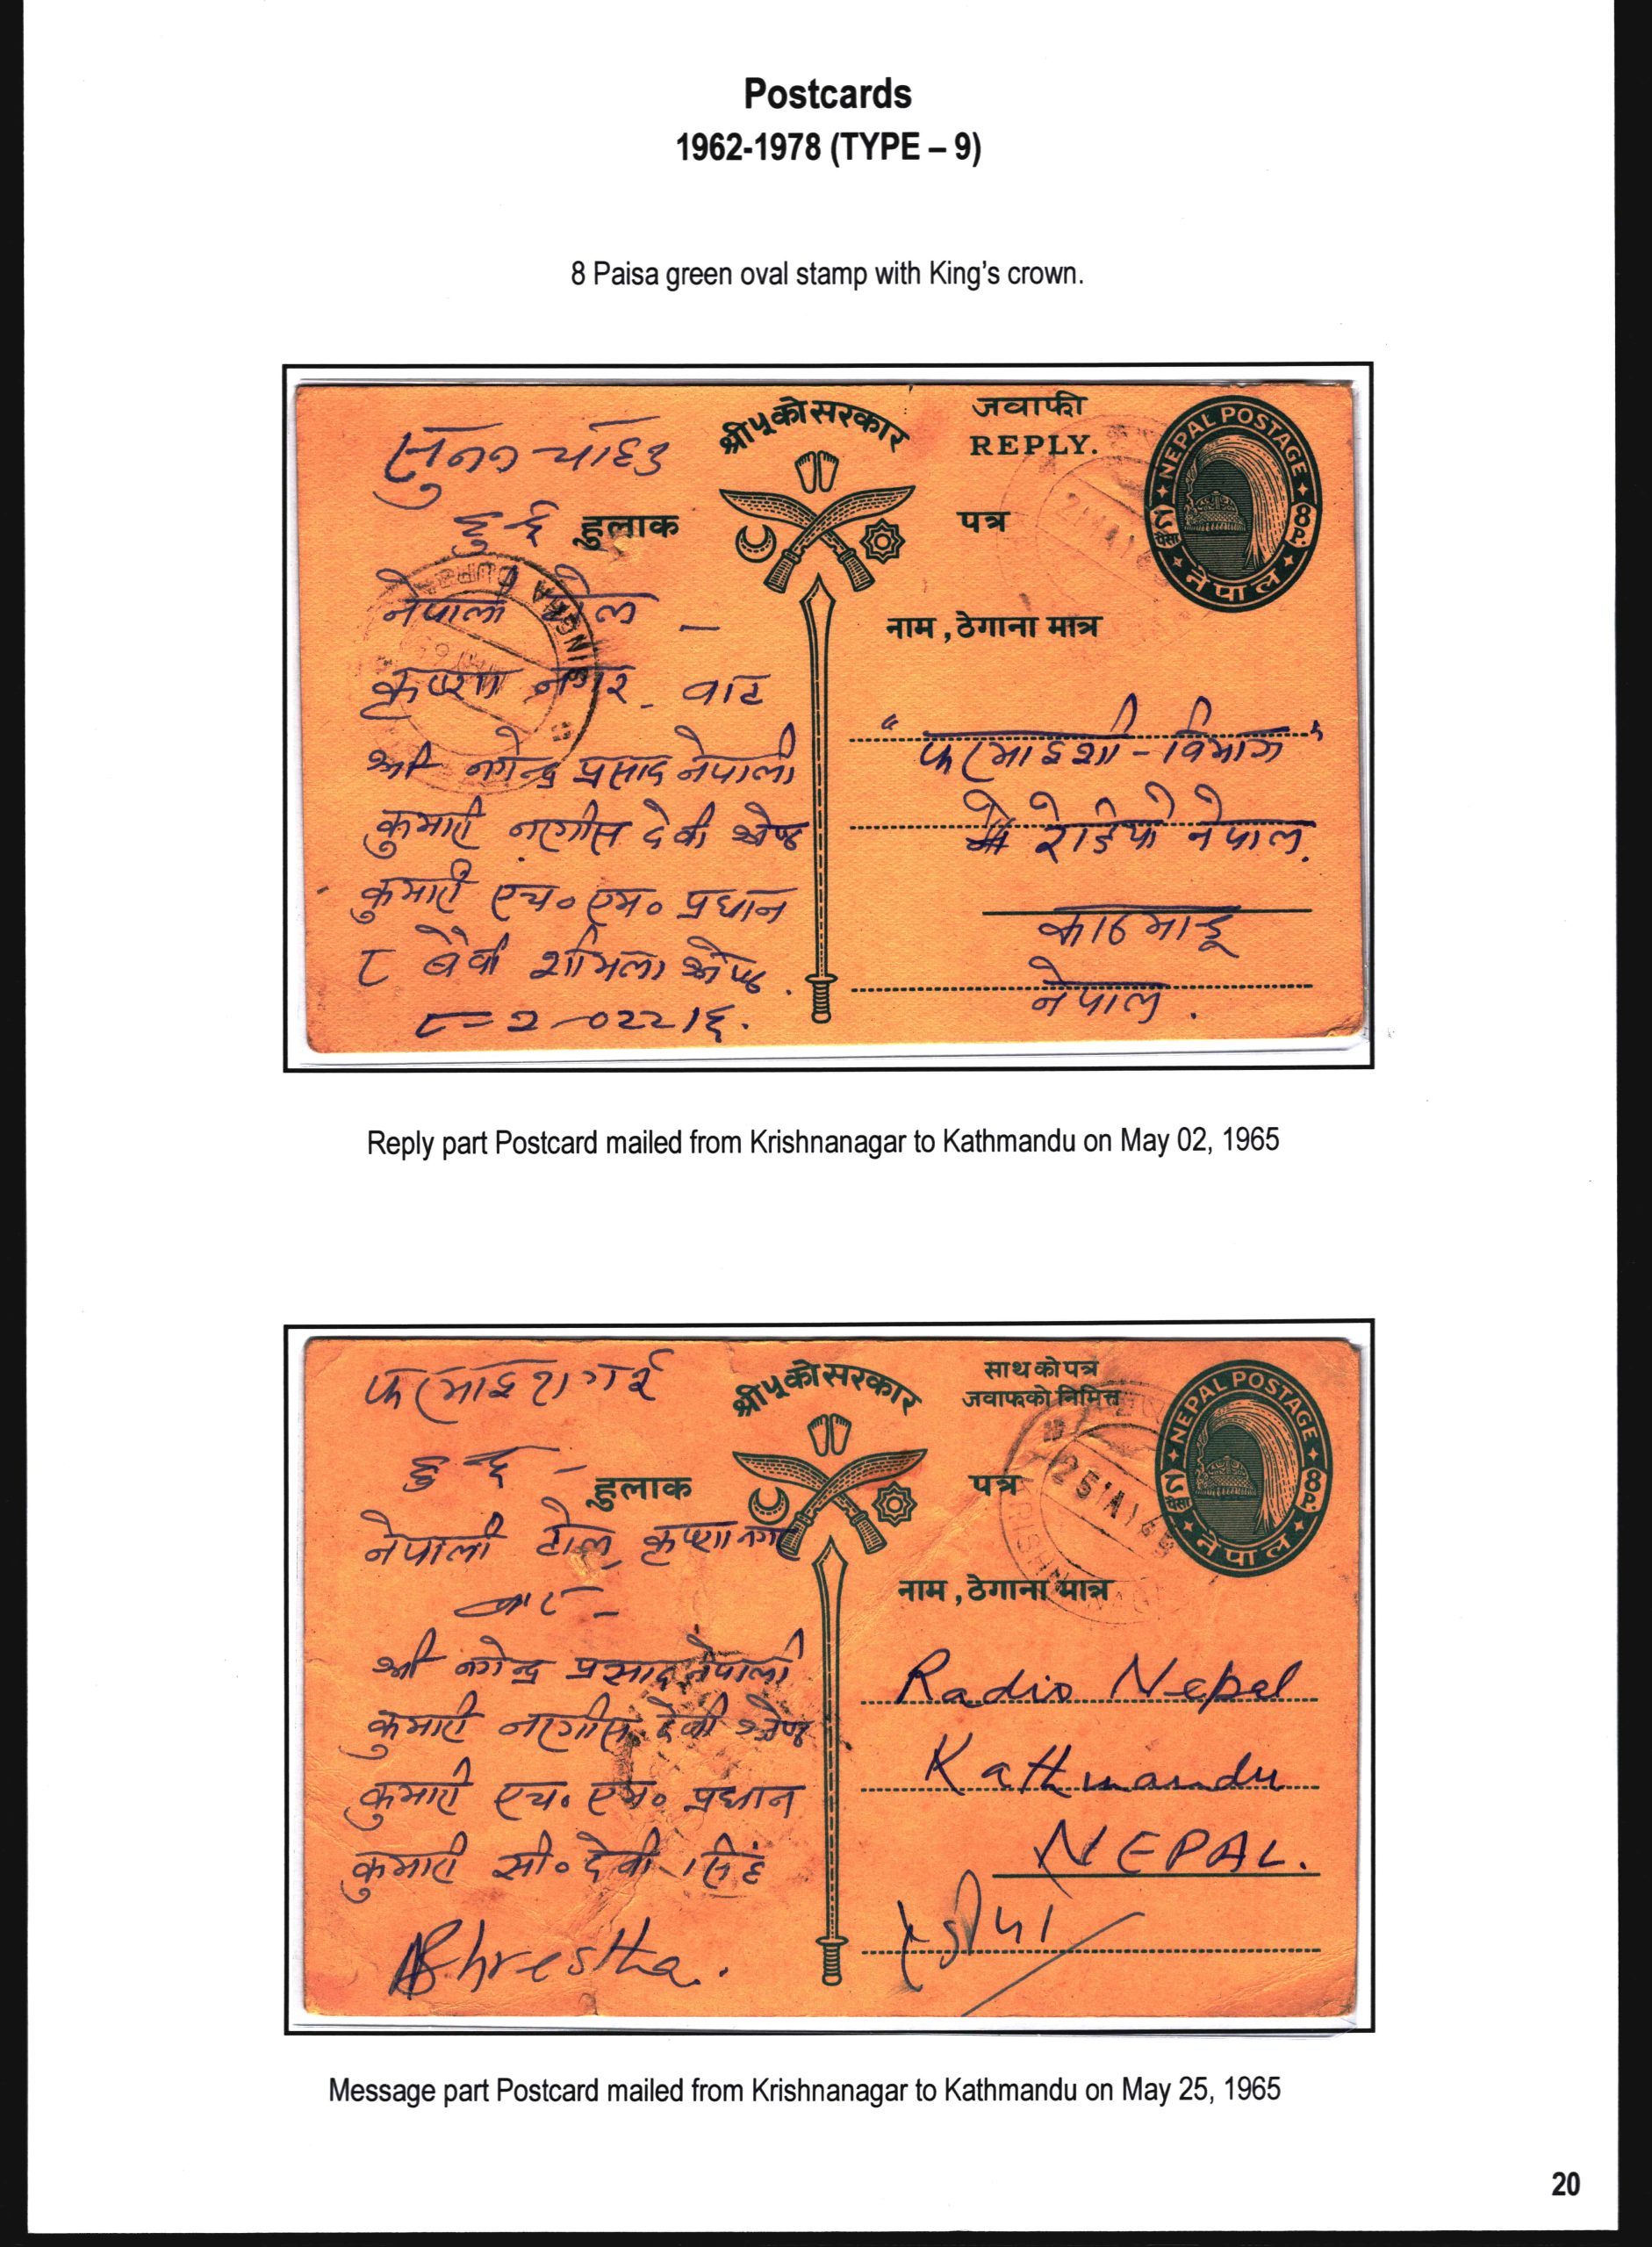 Postcards
1962-1978 (TYPE – 9)
8 Paisa green oval stamp with King's crown.
श्री ५ को सरकार
जवाफी
REPLY.
हुलाक
पत्र
NEPAL POSTAGE
८ पैसा
8 P.
नेपाल
नाम, ठेगाना मात्र
सुन्न चाहनु
हुन्छ
नेपाली टोल –
कृष्णा नगर - बाट
श्री नगेन्द्र प्रसाद नेपाली
कुमारी नरगीस देवी श्रेष्ठ
कुमारी एच० एम० प्रधान
शर्मिला श्रेष्ठ.
SINGHA DURBAR
"फरमाइशी - विभाग"
रेडियो नेपाल.
काठमाडू
नेपाल.
Reply part Postcard mailed from Krishnanagar to Kathmandu on May 02, 1965
श्री ५ को सरकार
साथको पत्र
जवाफको निमित्त
हुलाक
पत्र
NEPAL POSTAGE
८ पैसा
8 P.
नेपाल
25 MAY 65
KRISHNANAGAR
नाम, ठेगाना मात्र
हुन्छ -
नेपाली टोल, कृष्णा नगर
बाट -
श्री नगेन्द्र प्रसाद नेपाली
कुमारी नरगीस देवी श्रेष्ठ
कुमारी एच. एम० प्रधान
कुमारी सी० देवी सिंह
Shrestha.
Radio Nepal
Kathmandu
NEPAL.
Message part Postcard mailed from Krishnanagar to Kathmandu on May 25, 1965
20